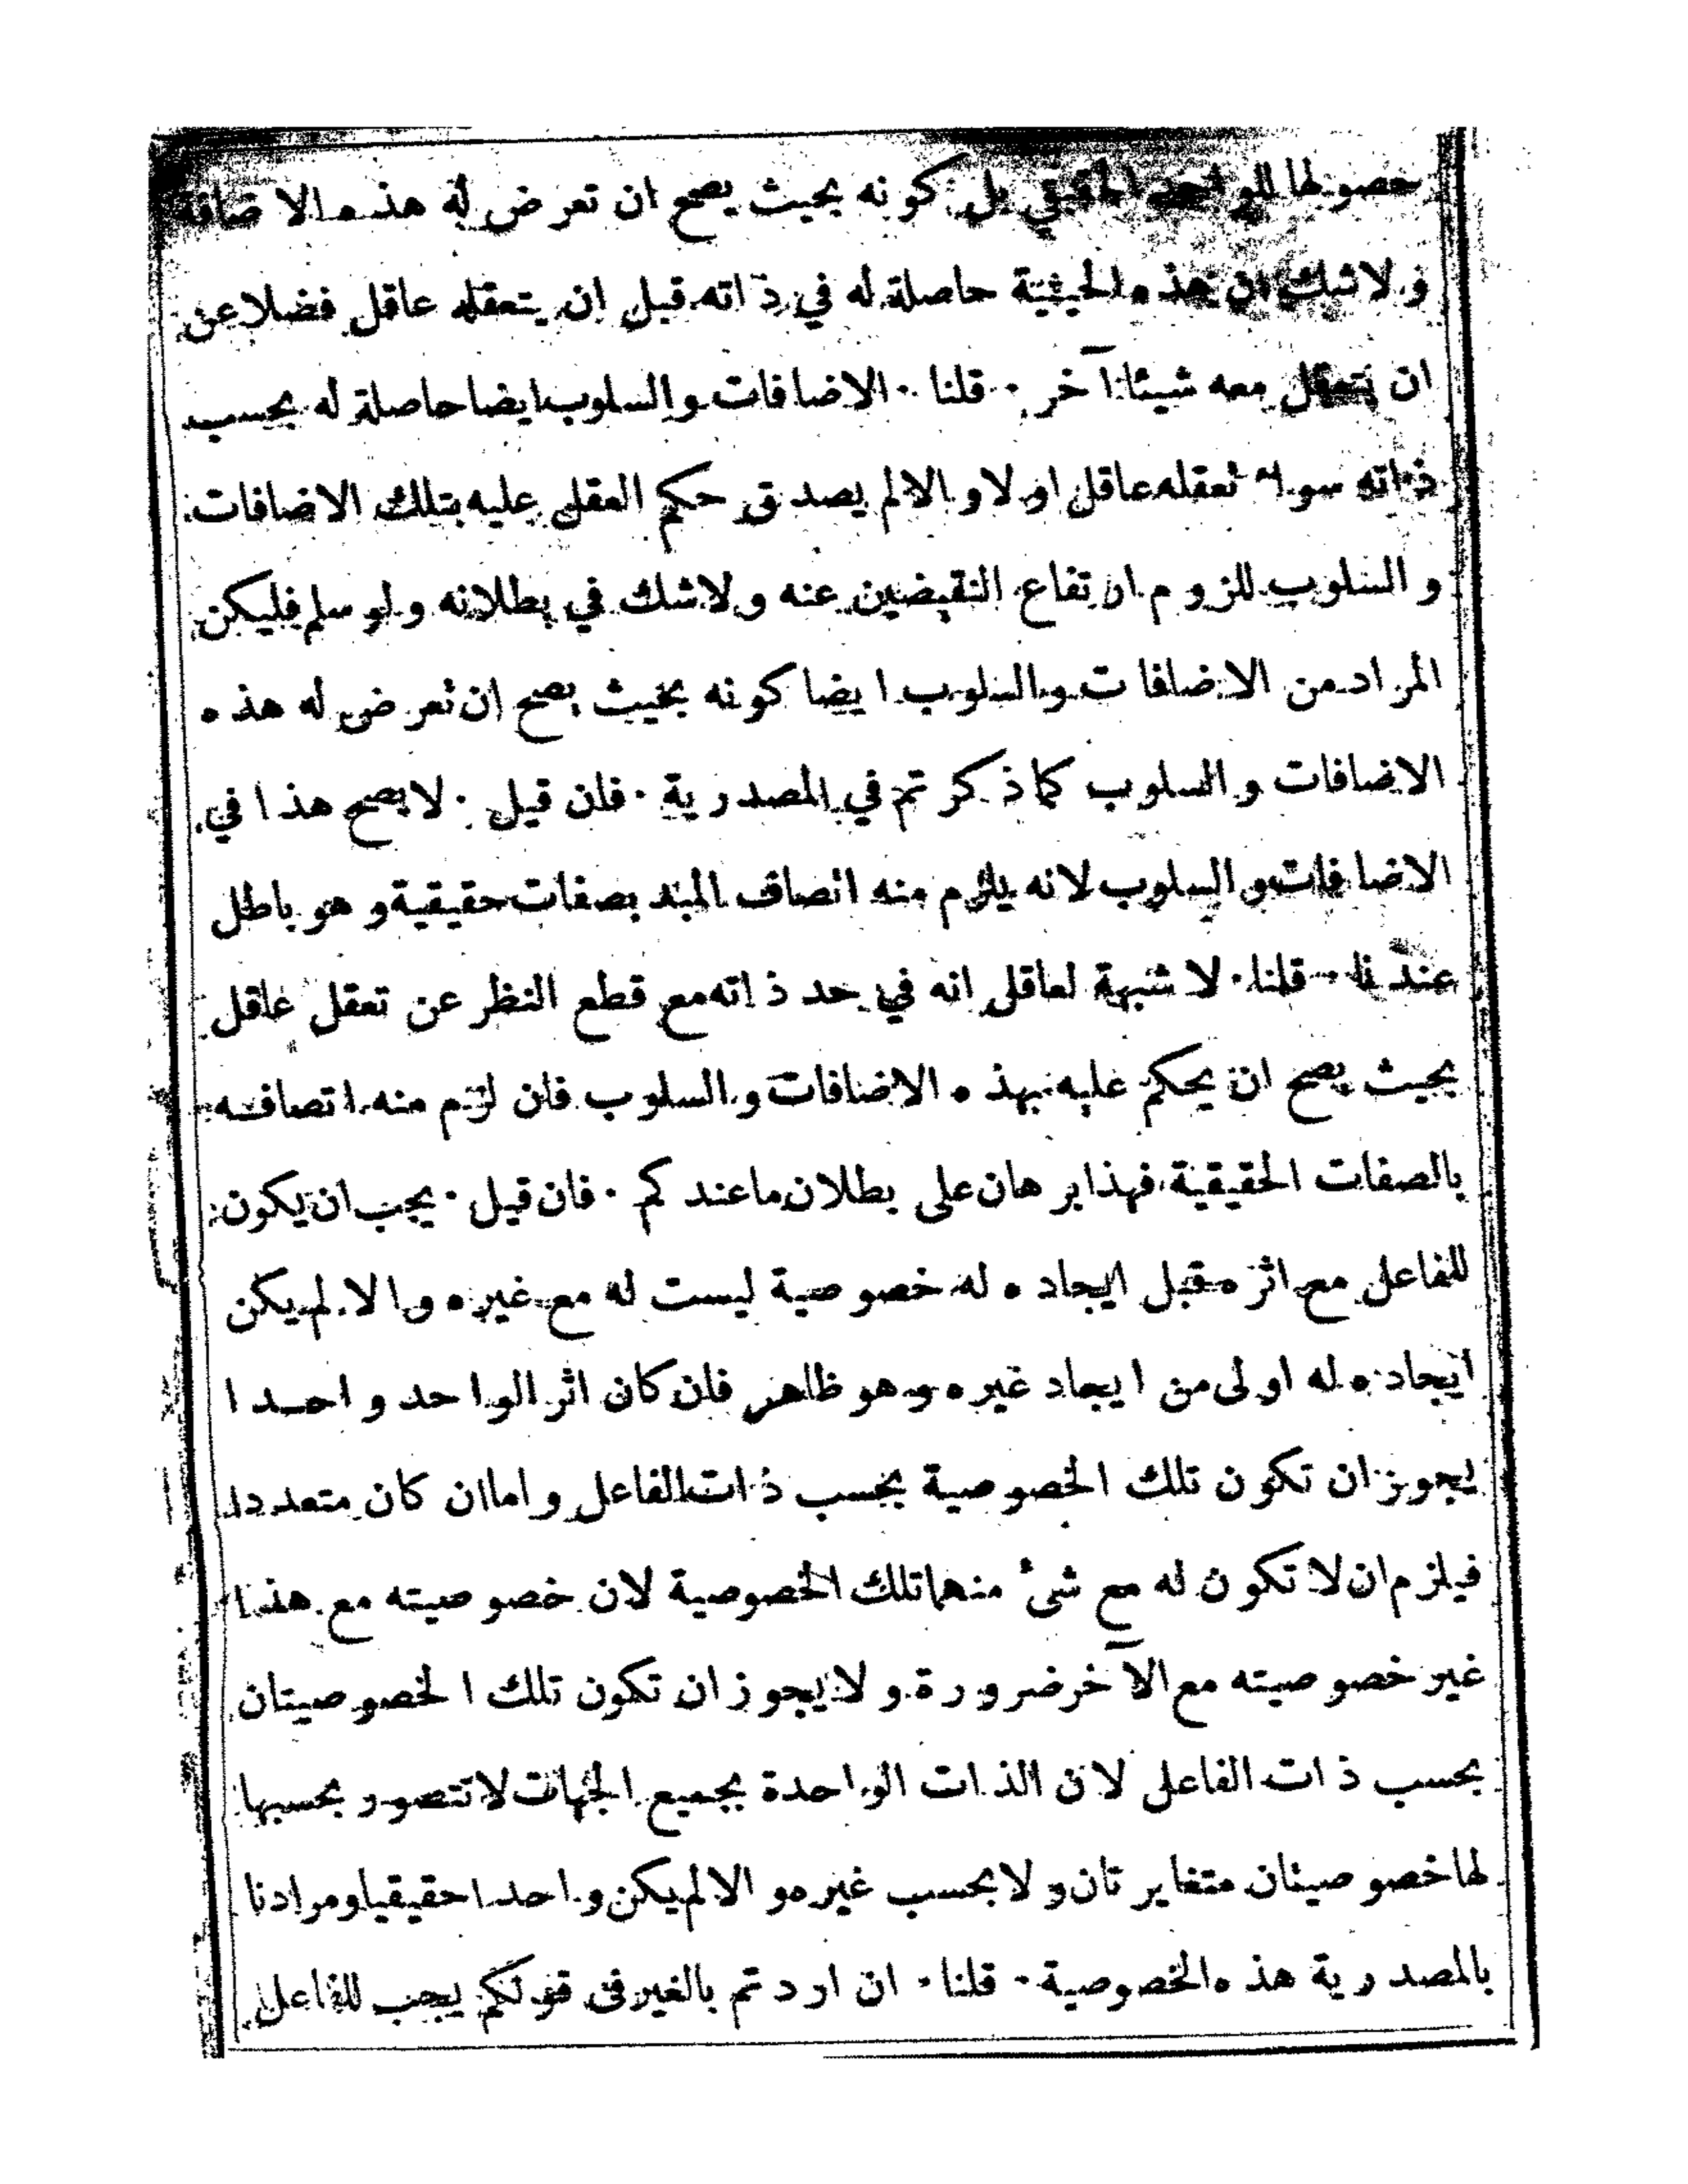 حصولها للواحد الحقيقي بل كونه بحيث يصح ان تعرض له هذه الاضافة
ولاشك ان هذه الحيثية حاصلة له في ذاته قبل ان يتعقله عاقل فضلا عن
ان يتعقل معه شيئا آخر · قلنا · الاضافات والسلوب ايضا حاصلة له بحسب
ذاته سواء تعقله عاقل اولا والا لم يصدق حكم العقل عليه بتلك الاضافات
والسلوب للزوم ارتفاع النقيضين عنه ولاشك في بطلانه ولو سلم فليكن
المراد من الاضافات والسلوب ايضا كونه بحيث يصح ان تعرض له هذه
الاضافات والسلوب كما ذكرتم في المصدرية · فان قيل · لا يصح هذا في
الاضافات والسلوب لانه يلزم منه اتصاف المبدء بصفات حقيقية وهو باطل
عندنا · قلنا · لا شبهة لعاقل انه في حد ذاته مع قطع النظر عن تعقل عاقل
بحيث يصح ان يحكم عليه بهذه الاضافات والسلوب فان لزم منه اتصافه
بالصفات الحقيقية فهذا برهان على بطلان ما عندكم · فان قيل · يجب ان يكون
للفاعل مع اثره قبل ايجاده له خصوصية ليست له مع غيره والا لم يكن
ايجاده له اولى من ايجاد غيره وهو ظاهر فان كان اثر الواحد واحدا
يجوز ان تكون تلك الخصوصية بحسب ذات الفاعل واما ان كان متعددا
فيلزم ان لا تكون له مع شئ منهما تلك الخصوصية لان خصوصيته مع هذا
غير خصوصيته مع الآخر ضرورة ولا يجوز ان تكون تلك الخصوصيتان
بحسب ذات الفاعل لان الذات الواحدة بجميع الجهات لا تتصور بحسبها
لها خصوصيتان متغايرتان ولا بحسب غيره والا لم يكن واحدا حقيقيا ومرادنا
بالمصدرية هذه الخصوصية · قلنا · ان اردتم بالغير فى قولكم يجب للفاعل